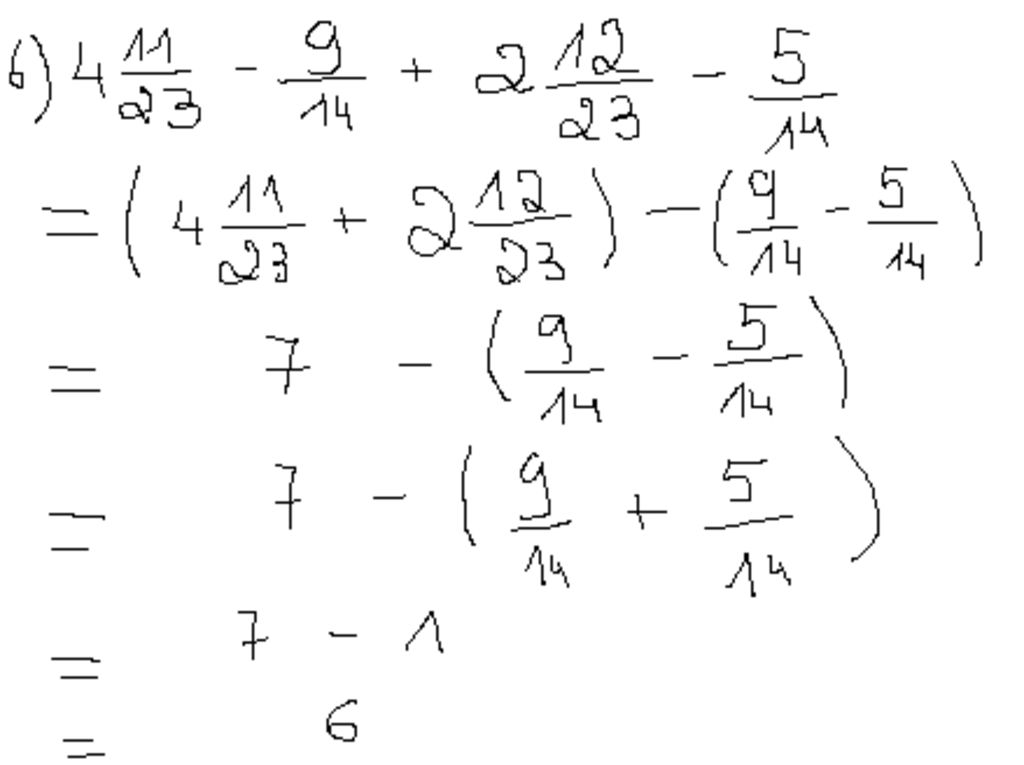 b) 4 11/23 - 9/14 + 2 12/23 - 5/14
= (4 11/23 + 2 12/23) - (9/14 - 5/14)
= 7 - (9/14 - 5/14)
= 7 - (9/14 + 5/14)
= 7 - 1
= 6